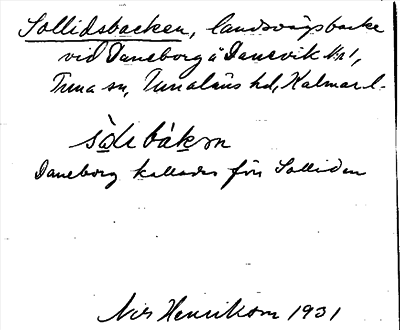 Sollidsbacken, landsvägsbacke
vid Daneborg å Danevik Nr 1,
Tuna sn, Tunaläns hd, Kalmar l.
sòlibákən
Daneborg kallades förr Solliden
Nils Henrikson 1931